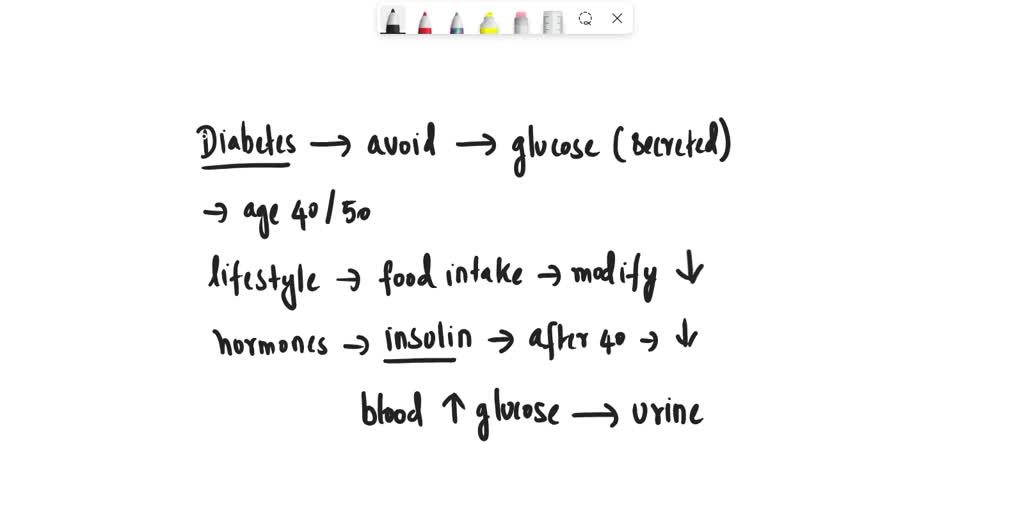 Diabetes → avoid → glucose (secreted)
→ age 40/50
lifestyle → food intake → modify ↓
hormones → insulin → after 40 → ↓
blood ↑ glucose → urine